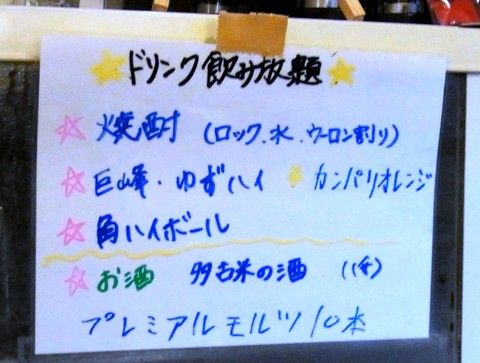 ドリンク飲み放題
焼酎 (ロック、水、ウーロン割り)
巨峰・ゆずハイ カンパリオレンジ
角ハイボール
お酒 多古米の酒
プレミアルモルツ10本